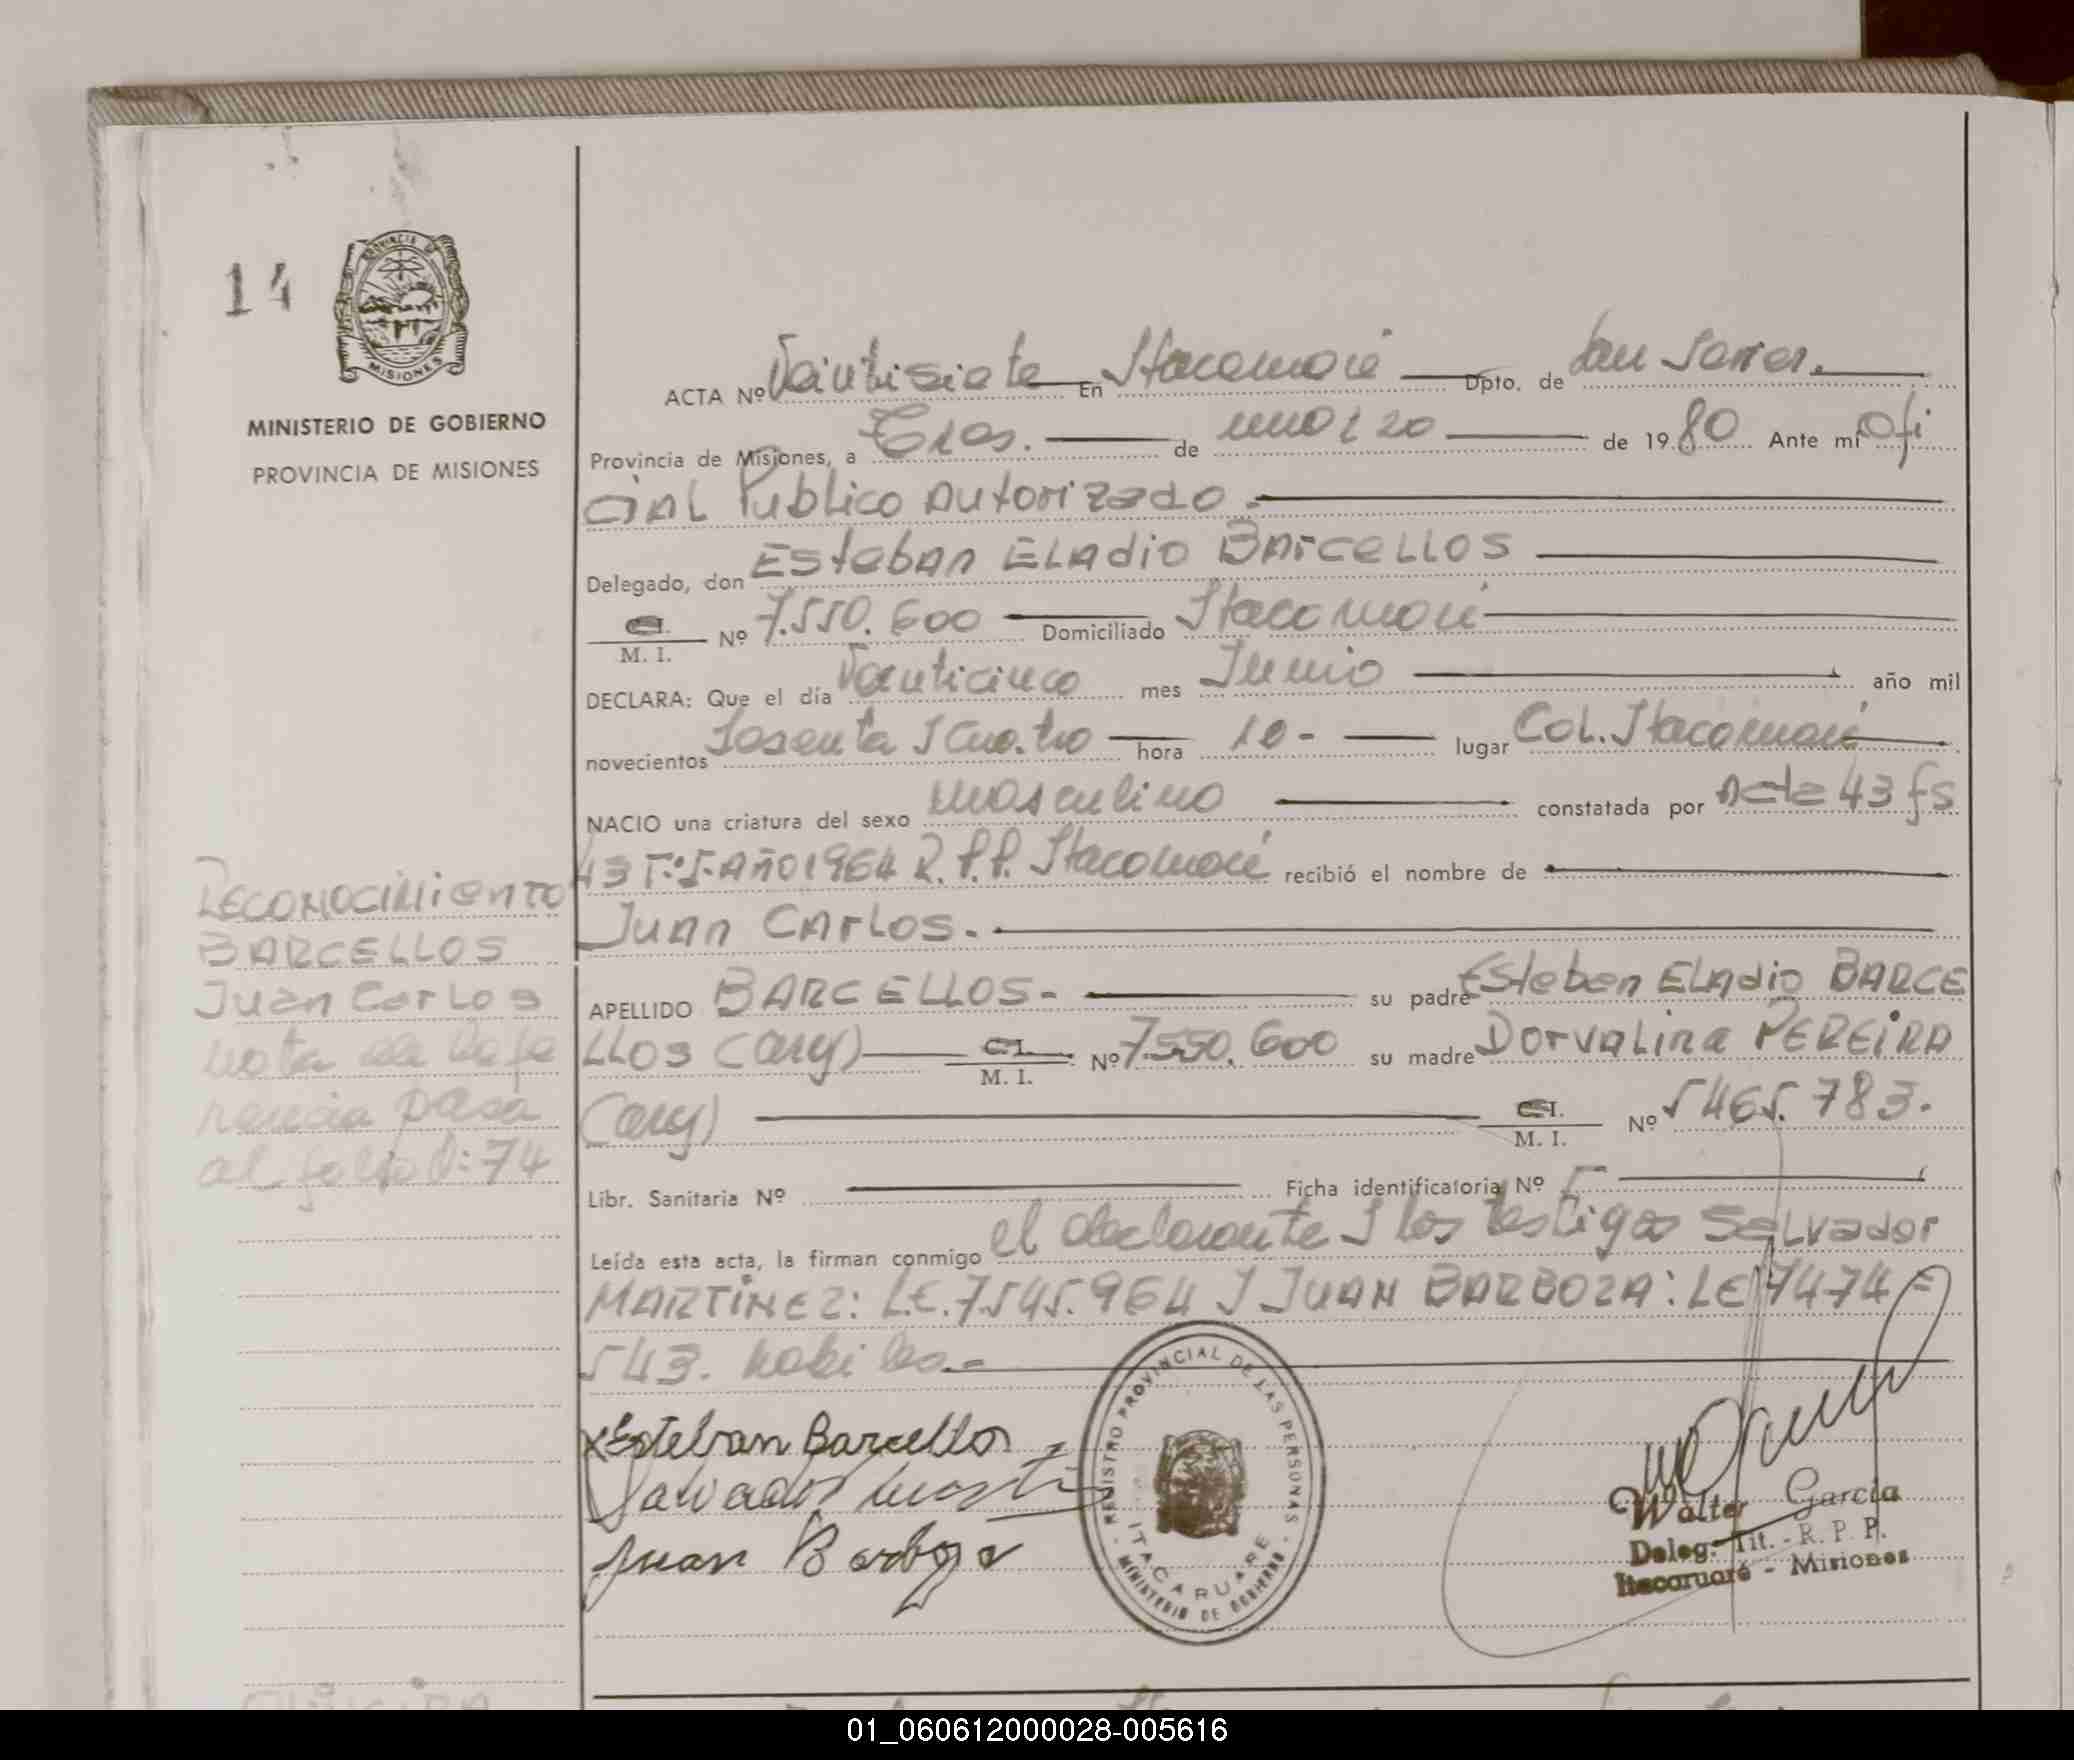 14
PROVINCIA DE
MISIONES
MINISTERIO DE GOBIERNO
PROVINCIA DE MISIONES
ACTA Nº Veintisiete En Itacaruaré Dpto. de San Javier.
Provincia de Misiones, a Tres. de marzo de 1980 Ante mi Ofi
cial Publico Autorizado.
Delegado, don Esteban Eladio Barcellos
C.I. M. I. Nº 7.550.600 Domiciliado Itacaruaré
DECLARA: Que el día Veinticinco mes Junio año mil
novecientos Sesenta I Cuatro hora 10- lugar Col. Itacaruaré
NACIO una criatura del sexo masculino constatada por Acta 43 fs
43 Tº I. Año 1964 R.P.P. Itacaruaré recibió el nombre de
Juan Carlos.
APELLIDO BARCELLOS- su padre Esteban Eladio BARCE
LLOS (arg) C.I. M. I. Nº 7.550.600 su madre Dorvalina PEREIRA
(arg) C.I. M. I. Nº 5465.783.
Libr. Sanitaria Nº Ficha identificatoria Nº
Leída esta acta, la firman conmigo el declarante I los testigos Salvador
MARTINEZ: L.E. 7.545.964 I JUAN BARBOZA: LE 7474
543. habiles.-
Reconocimiento
BARCELLOS
Juan Carlos
nota de Refe
rencia pasa
al folio Nº 74
x Esteban Barcellos
Salvador Marti
Juan Barboza
REGISTRO PROVINCIAL DE LAS PERSONAS
ITACARUARE
MINISTERIO DE GOBIERNO
Walter García
Deleg. Tit. - R. P. P.
Itacaruaré - Misiones
01_060612000028-005616